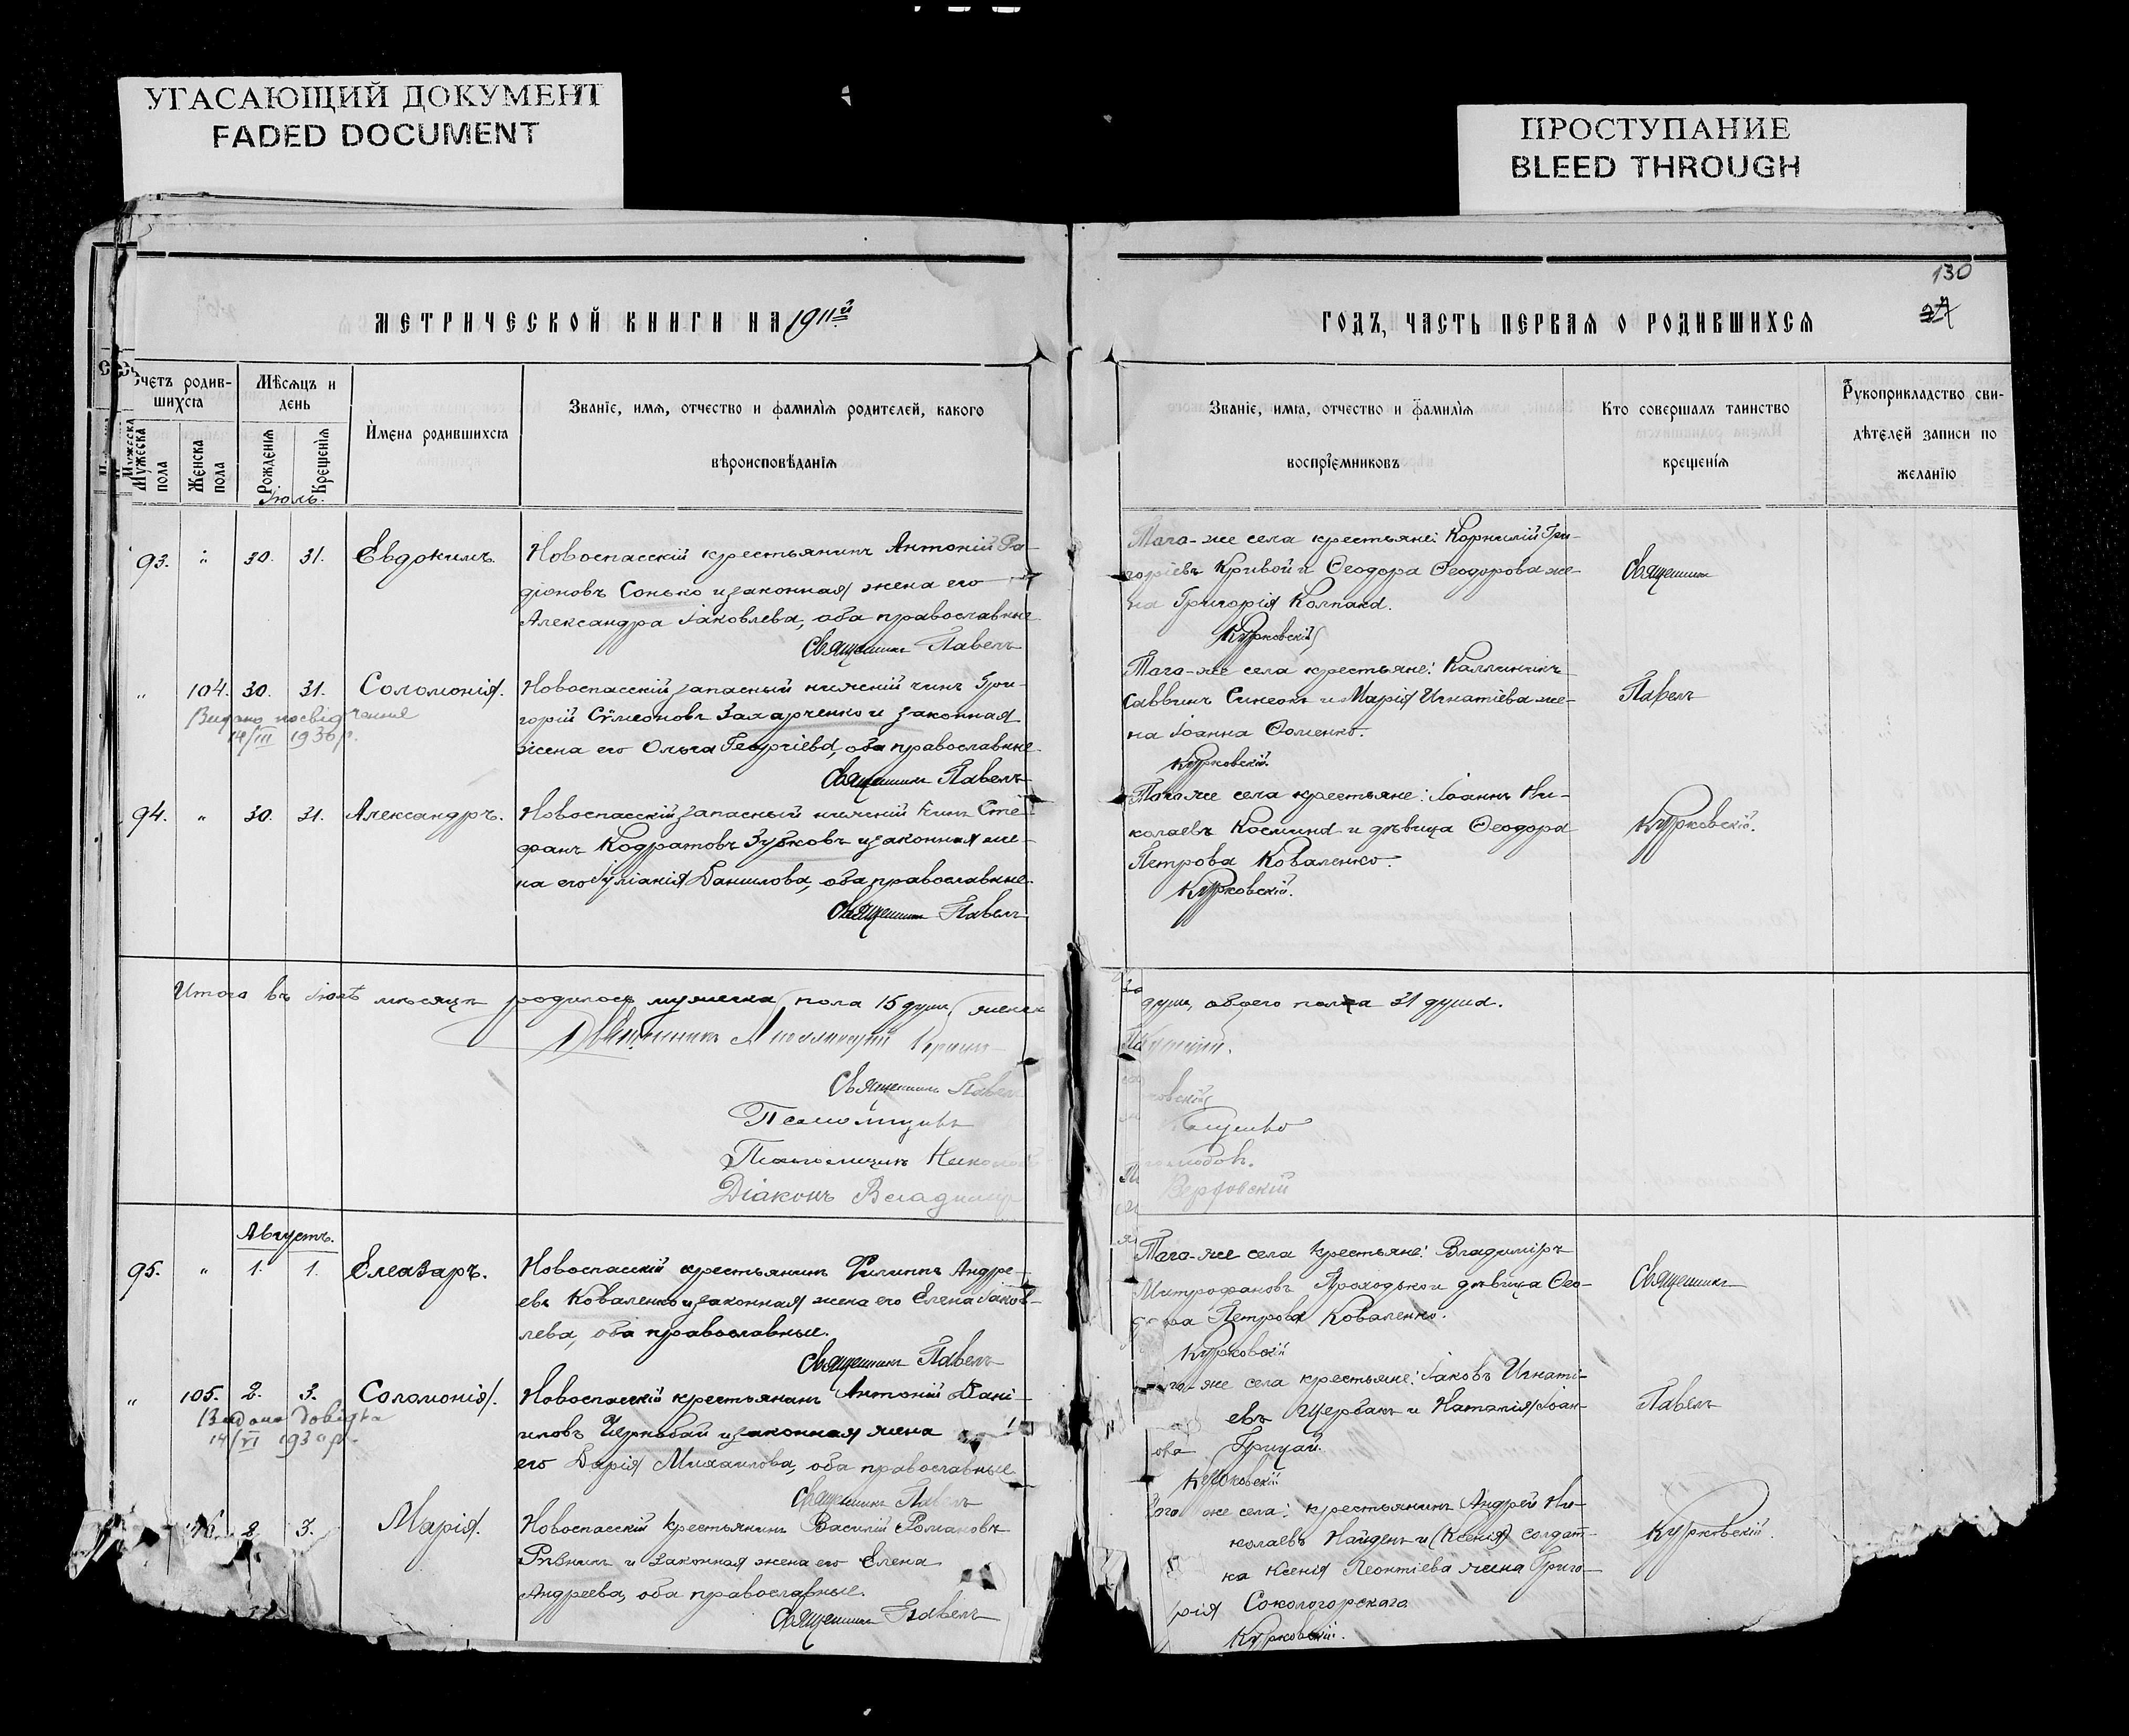 УГАСАЮЩИЙ ДОКУМЕНТ
FADED DOCUMENT
ПРОСТУПАНИЕ
BLEED THROUGH
130
27
МЕТРИЧЕСКОЙ КНИГИ НА 1911й
ГОДЪ, ЧАСТЬ ПЕРВАЯ О РОДИВШИХСЯ
Счетъ родившихся
Мужеска пола
Женска пола
Мѣсяцъ и день
Рожденія
Крещенія
Имена родившихся
Званіе, имя, отчество и фамилія родителей, какого
вѣроисповѣданія
Званіе, имя, отчество и фамилія
воспріемниковъ
Кто совершалъ таинство
крещенія
Рукоприкладство сви-
дѣтелей записи по
желанію
Іюль.
93. " 30. 31. Евдокимъ.
Новоспасскій крестьянинъ Антоній Ра-
діоновъ Сонько и законная жена его
Александра Іаковлева, оба православные
Священникъ Павелъ
Того-же села крестьяне: Корнилій Гри-
горіевъ Кривой и Ѳеодора Ѳеодорова же-
на Григорія Колпака.
Курковскій
Священникъ
" 104. 30. 31. Соломонія.
Видано посвідчення
14/III 1936р.
Новоспасскій запасный нижній чинъ Гри-
горій Сѵмеоновъ Захарченко и законная
жена его Ольга Георгіева, оба православные.
Священникъ Павелъ
Того-же села крестьяне: Каллиникъ
Саввинъ Симеонъ и Марія Игнатіева же-
на Іоанна Ѳоменко.
Курковскій.
Павелъ
94. " 30. 31. Александръ.
Новоспасскій запасный нижній чинъ Сте-
фанъ Кодратовъ Зубковъ и законная же-
на его Іуліанія Данилова, оба православные.
Священникъ Павелъ
Того же села крестьяне: Іоаннъ Ни-
колаевъ Космина и дѣвица Ѳеодора
Петрова Коваленко.
Курковскій.
Курковскій.
Итого въ Іюлѣ мѣсяцѣ родилось мужеска пола 15 душъ, женск
душъ, обоего пола 31 душа.
Священникъ
Священникъ Павел
ковскій
Псаломщикъ
Псаломщикъ
Діаконъ Владимір
Августъ.
95. " 1. 1. Елеазаръ.
Новоспасскій крестьянинъ Филиппъ Андре-
евъ Коваленко и законная жена его Елена Іаков-
лева, оба православные.
Священникъ Павелъ
Того-же села крестьяне: Владиміръ
Митрофановъ Проходько и дѣвица Ѳео-
дора Петрова Коваленко.
Курковскій
Священникъ
" 105. 2. 3. Соломонія.
Видана довідка
14/VI 193
Новоспасскій крестьянинъ Антоній Дані-
иловъ Чернобай и законная жена
его Дарія Михаилова, оба православные
Священникъ Павелъ
го-же села крестьяне: Іаковъ Игнаті-
евъ Щербакъ и Наталія Іоан-
ова Грицай.
Курковскій
Павелъ
2. 3. Марія.
Новоспасскій крестьянинъ Василій Романовъ
Рѣвникъ и законная жена его Елена
Андреева, оба православные.
Священникъ Павелъ
Того же села: крестьянинъ Андрей Ни-
колаевъ Найденъ и (Ксенія) солдат-
ка Ксенія Леонтіева жена Григо-
рія Сокологорскаго
Курковскій.
Курковскій.